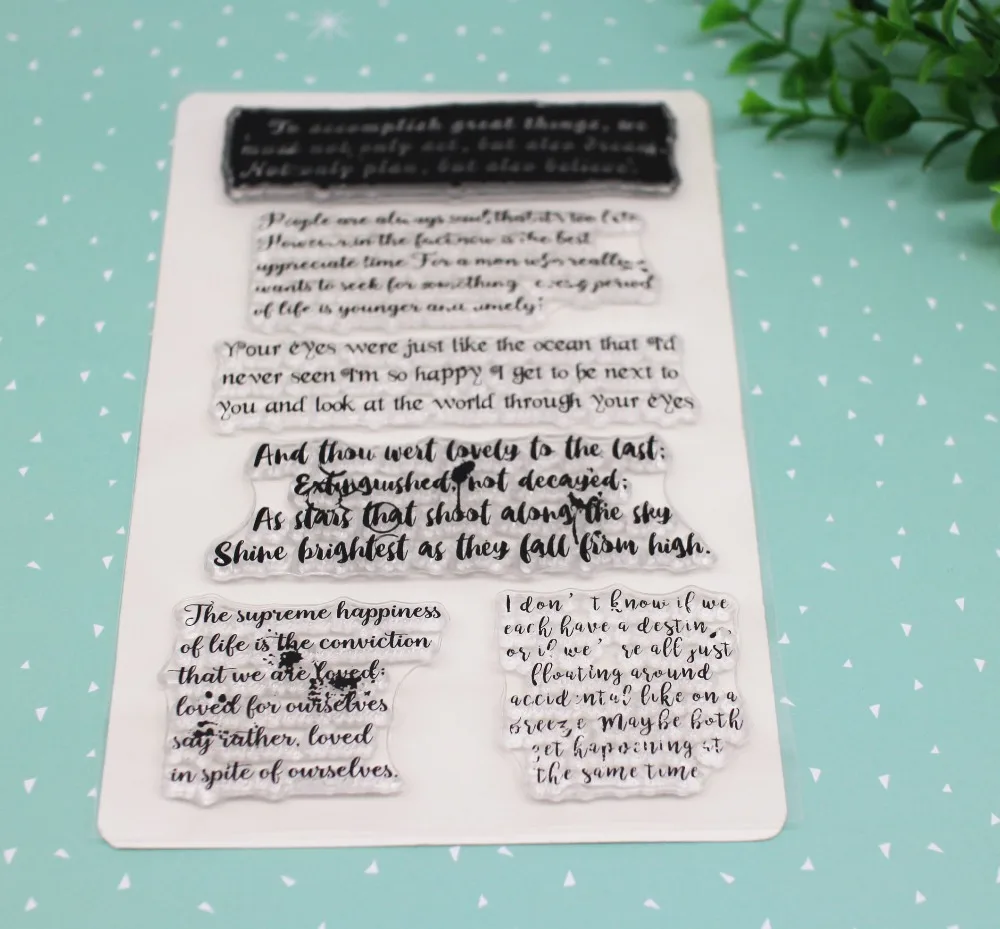 To accomplish great things, we
must not only act, but also dream.
Not only plan, but also believe.
People are always said, that it's too late
However, in the fact now is the best
appreciate time For a man who really
wants to seek for something every period
of life is younger and timely
Your eyes were just like the ocean that I'd
never seen I'm so happy I get to be next to
you and look at the world through your eyes
And thou wert lovely to the last;
Extinguished, not decayed;
As stars that shoot along the sky
Shine brightest as they fall from high.
The supreme happiness
of life is the conviction
that we are loved;
loved for ourselves
say rather, loved
in spite of ourselves.
I don't know if we
each have a destin
or if we're all just
floating around
accidental like on a
breeze Maybe both
get happening at
the same time